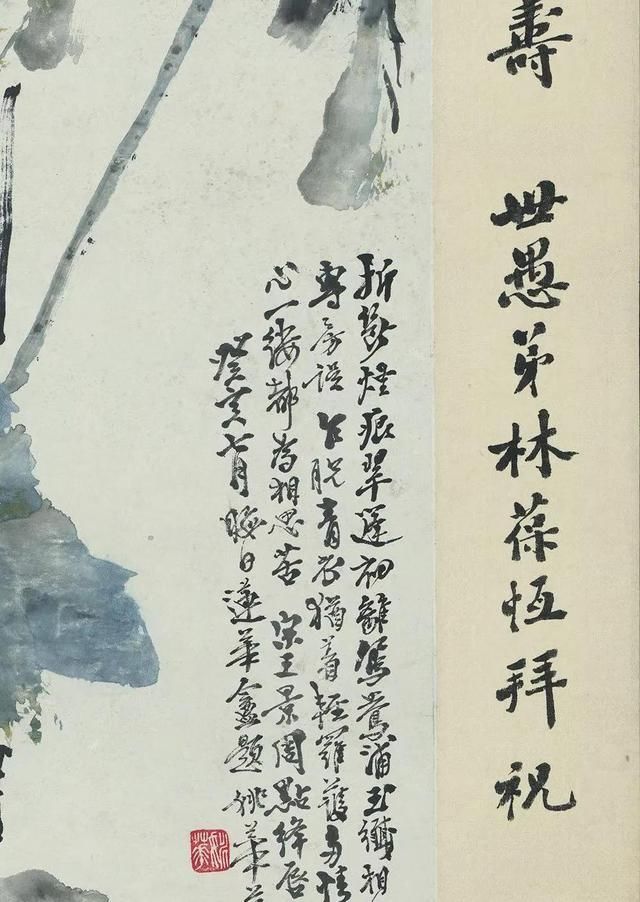 壽 世愚弟林葆恆拜祝
折斷煙痕翠蓬初離鴛鴦浦玉纖相
專房誤乍脫青衣猶着輕羅護多情
心一縷都為相思苦 宋王景周點絳唇
癸亥七月晦日蓮華盦題 姚華